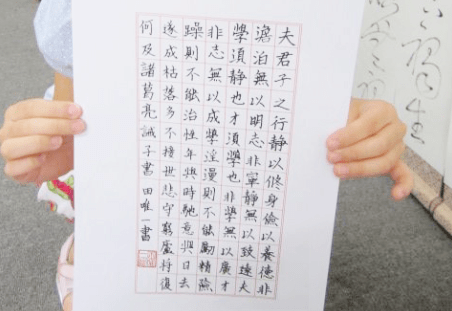 夫君子之行静以修身儉以養德非
澹泊無以明志非寧静無以致遠夫
學須静也才須學也非學無以廣才
非志無以成學淫漫則不能勵精險
躁則不能治性年與時馳意與日去
遂成枯落多不接世悲守窮廬将復
何及諸葛亮誡子書田唯一書
生